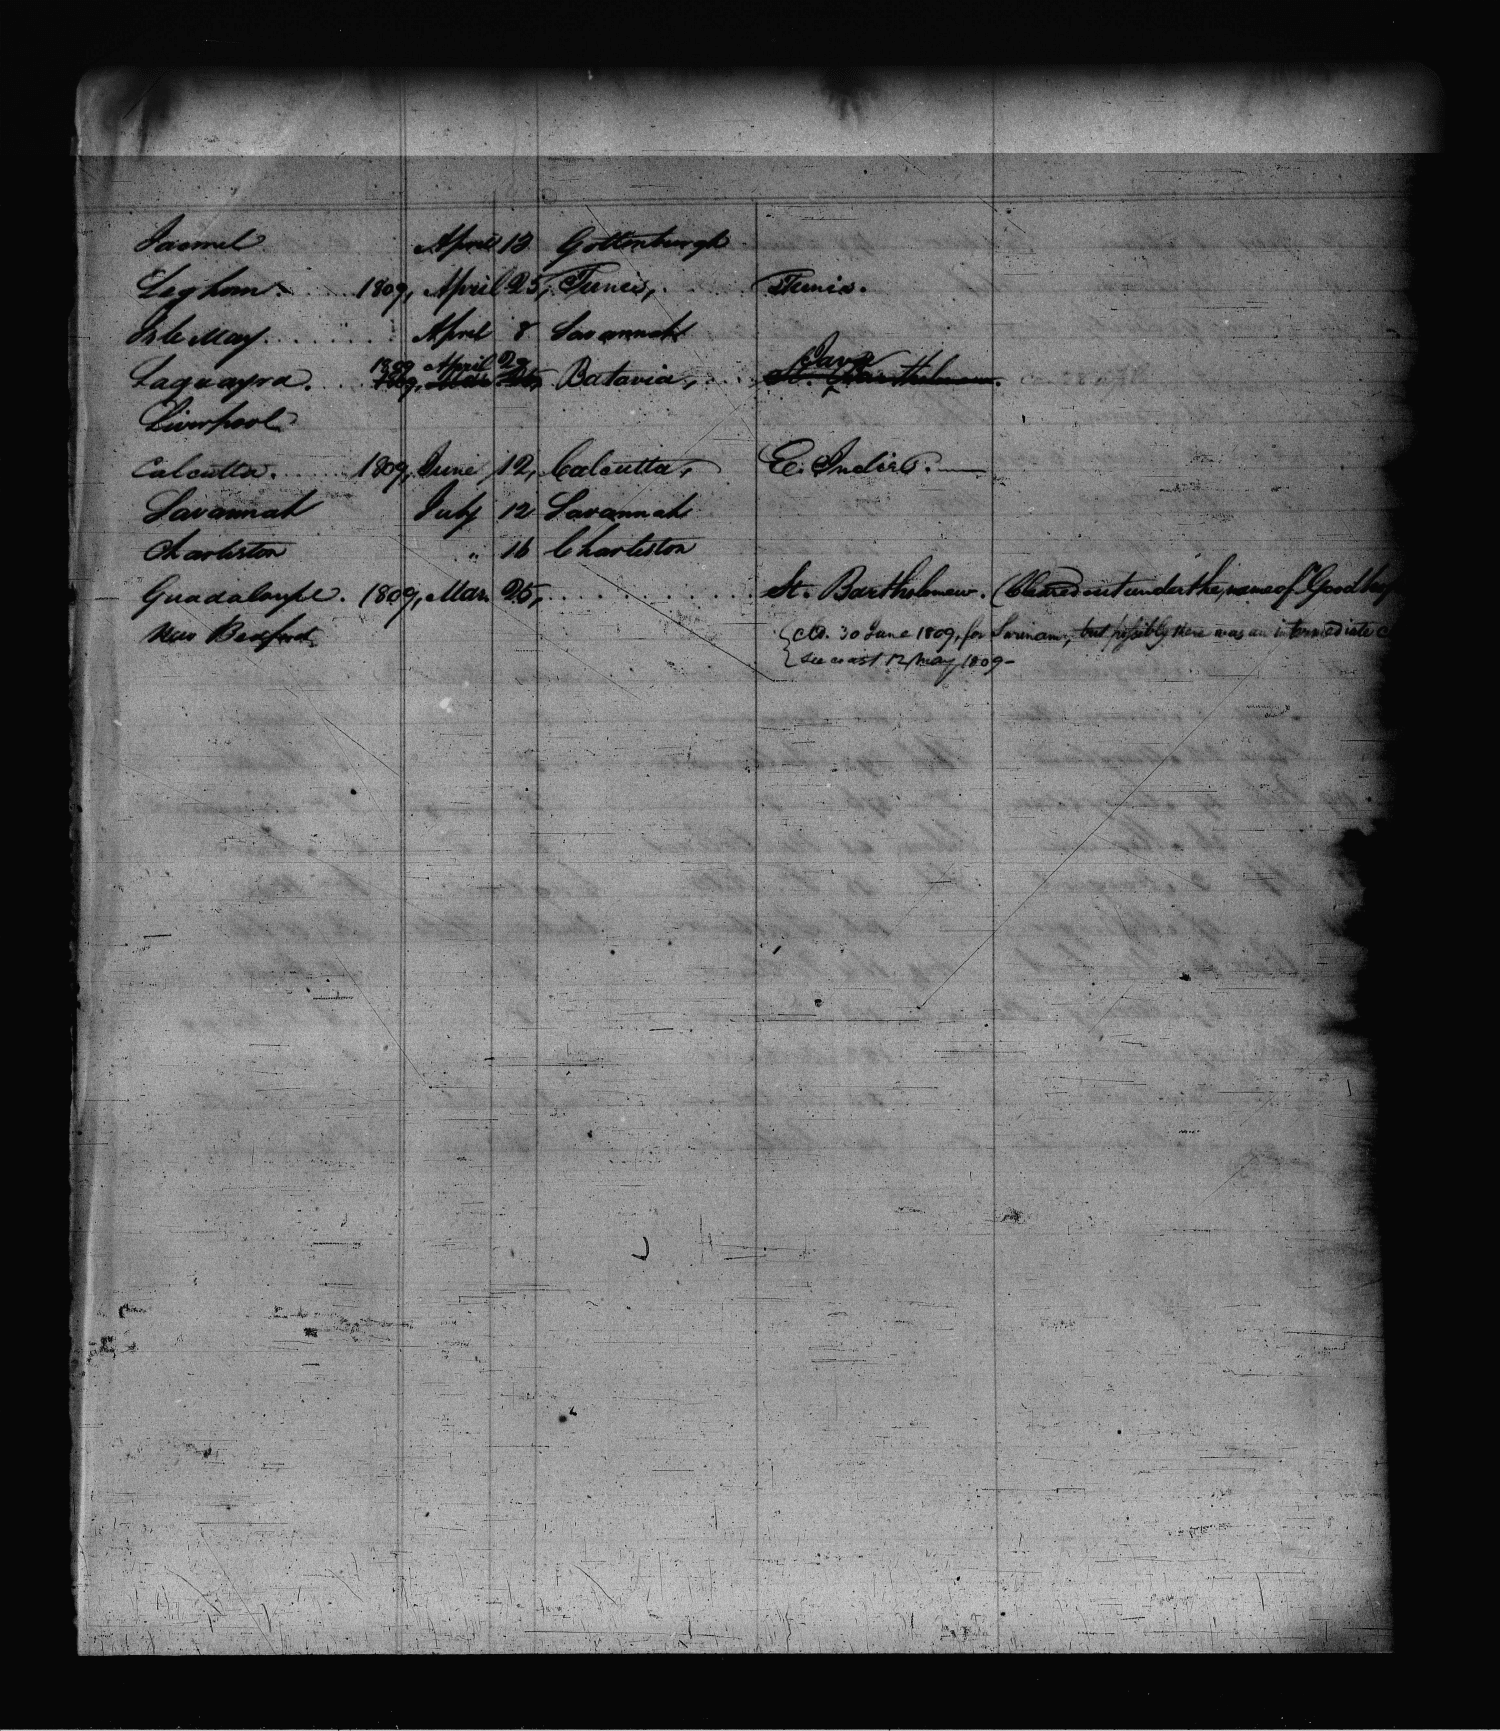 Jacmel April 13 Gottenburgh
Leghorn. ..... 1809, April 25, Tunis, ..... Tunis.
Isle May. ...... April 8 Savannah
1809 April 29 Java
Laguayra. ... 1809, Mar 25, Batavia, ... St. Bartholomew.
Liverpool
Calcutta. ..... 1809, June 12, Calcutta, E. Indies.
Savannah July 12 Savannah
Charleston " 16 Charleston
Guadaloupe. 1809, Mar. 25, .......... St. Bartholomew. (Cleared out under the name of "Good
New Bedford { cld. 30 June 1809, for Surinam, but possibly there was an intermediate
{ see coast 12 May 1809-